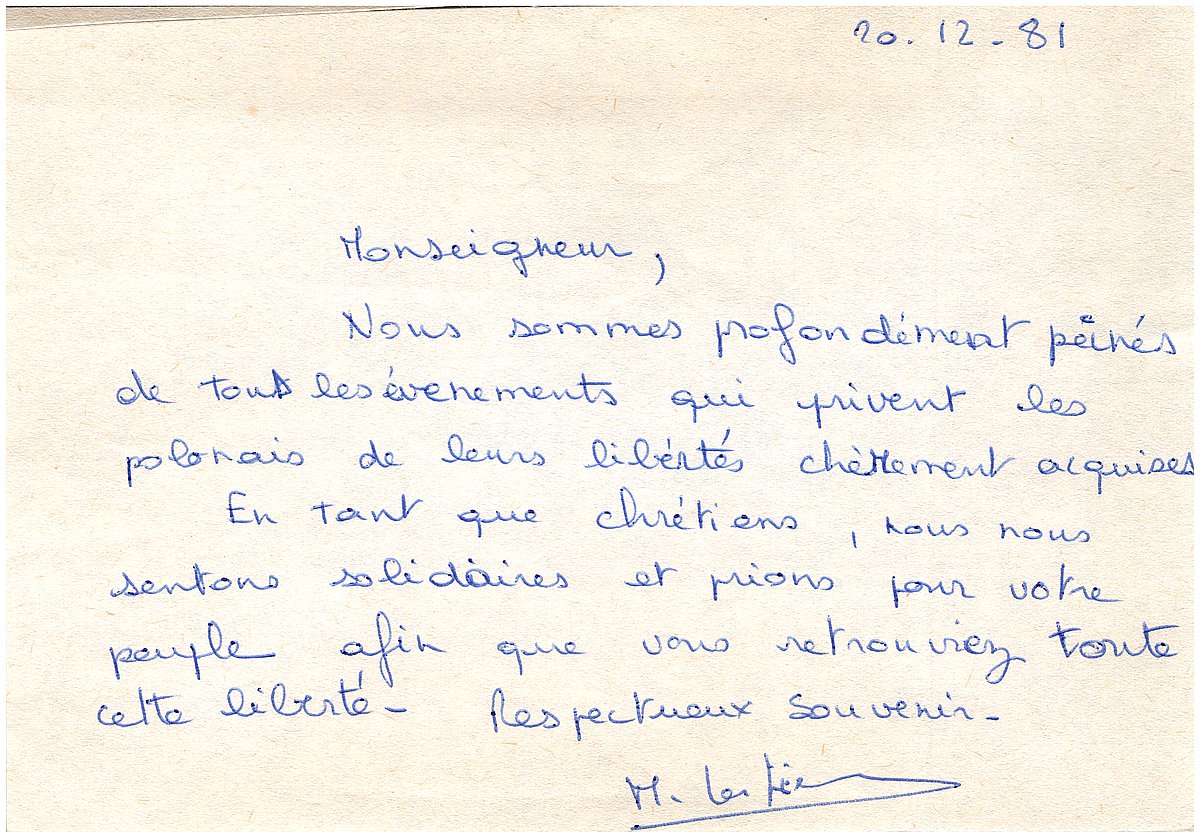 20.12-81
Monseigneur,
Nous sommes profondément peinés
de tous les évenements qui privent les
polonais de leurs libértés chèrement acquises
En tant que chrétiens, nous nous
sentons solidaires et prions pour votre
peuple afin que vous retrouviez toute
cette liberté- Respectueux Souvenir-
M.